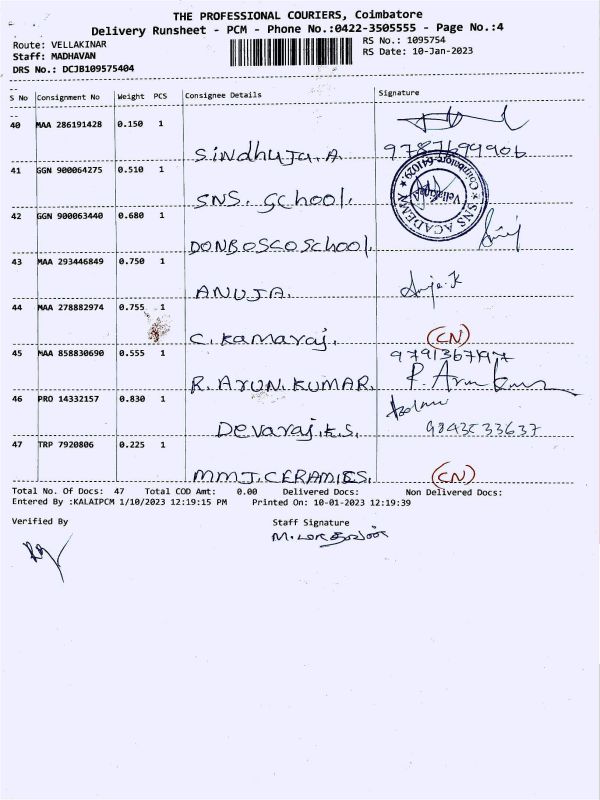 THE PROFESSIONAL COURIERS, Coimbatore
Delivery Runsheet - PCM - Phone No.:0422-3505555 - Page No.:4
Route: VELLAKINAR
RS No.: 1095754
Staff: MADHAVAN
RS Date: 10-Jan-2023
DRS No.: DCJB109575404
S No Consignment No Weight PCS Consignee Details Signature
40 MAA 286191428 0.150 1
Sindhuja. A 9787699906
41 GGN 900064275 0.510 1
SNS. School. SNS ACADEMY Vellakinar Coimbatore-641029
42 GGN 900063440 0.680 1
DONBOSCO School.
43 MAA 293446849 0.750 1
ANUJA. Anja.K
44 MAA 278882974 0.755 1
C. Kamaraj. (CN)
45 MAA 858830690 0.555 1 9791367197
R. ARUN. KUMAR. R. Arun Kumar
46 PRO 14332157 0.830 1
Devaraj.K.S. 9843533637
47 TRP 7920806 0.225 1
MMJ. CERAMICS. (CN)
Total No. Of Docs: 47 Total COD Amt: 0.00 Delivered Docs: Non Delivered Docs:
Entered By :KALAIPCM 1/10/2023 12:19:15 PM Printed On: 10-01-2023 12:19:39
Verified By Staff Signature